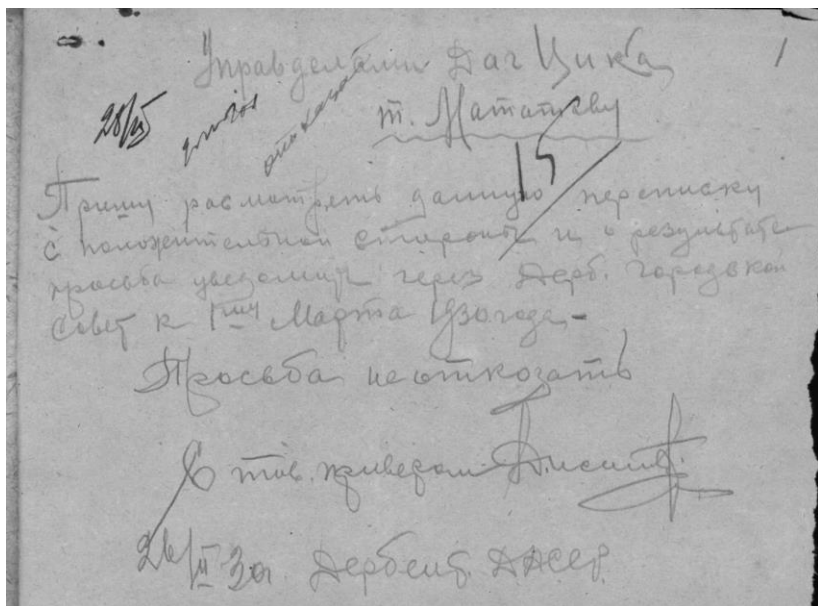 1
Управделами Даг Цика
т. Мататову
28/II
отказать
15
Прошу расмотреть данную переписку
с положительной стороны и о результате
просьба уведомить через Дерб. Городской
Совет к 1му Марта 1930 года. -
Просьба неотказать
С тов. приветом
26/II 30г. Дербент. ДАССР.